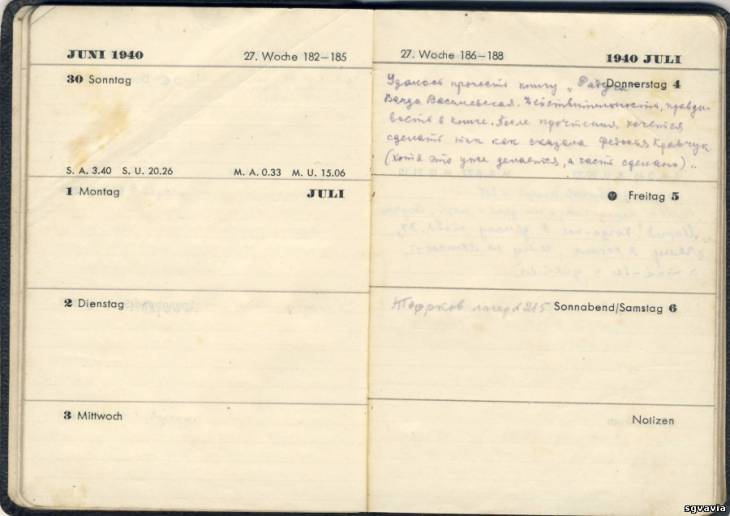 JUNI 1940
27. Woche 182–185
30 Sonntag
S. A. 3.40 S. U. 20.26 M. A. 0.33 M. U. 15.06
1 Montag
JULI
2 Dienstag
3 Mittwoch
27. Woche 186–188
1940 JULI
Donnerstag 4
Удалось прочесть книгу „Радуга
Ванда Василевская. Действительность, правди-
вость в книге. После прочтения, хочется
сделать так как сказала Федосия Кравчук
(хотя это уже делается, а часть сделано)..
Freitag 5
Sonnabend/Samstag 6
лагер № 215
Notizen
sgvavia